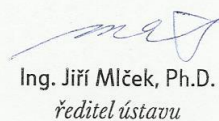 Ing. Jiří Mlček, Ph.D.
ředitel ústavu